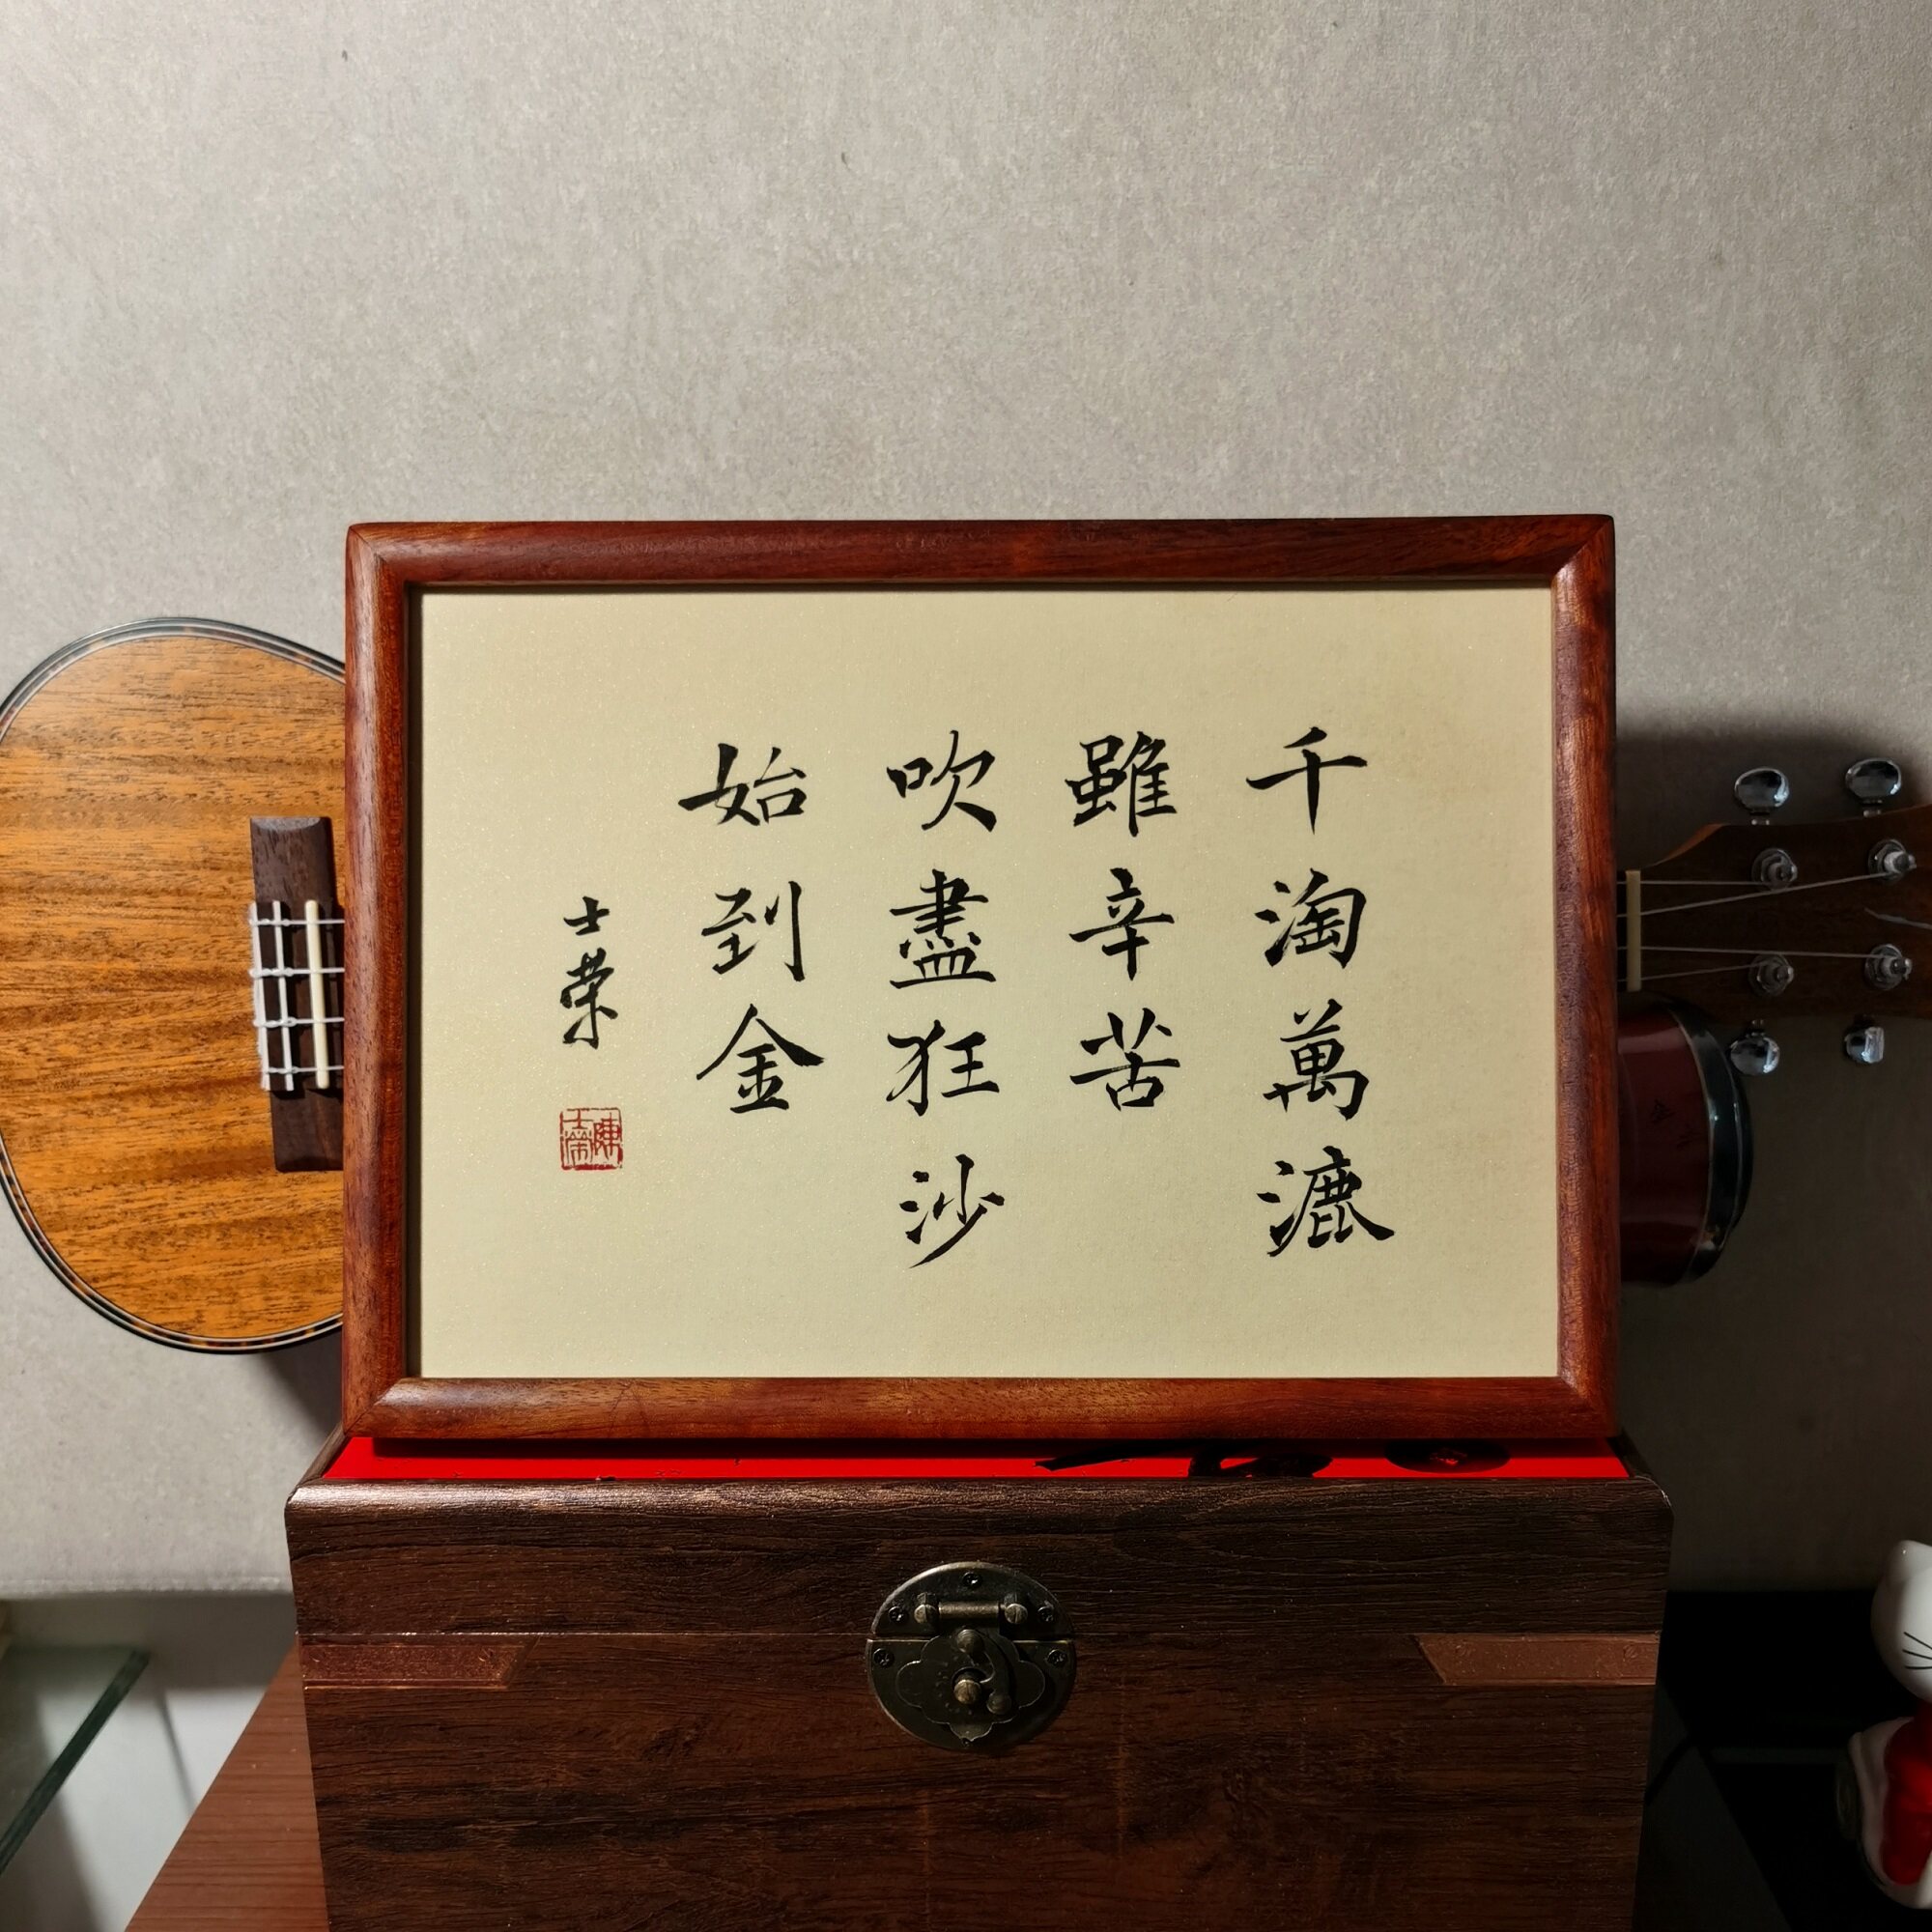 千淘萬漉
雖辛苦
吹盡狂沙
始到金
士荣
陳士榮